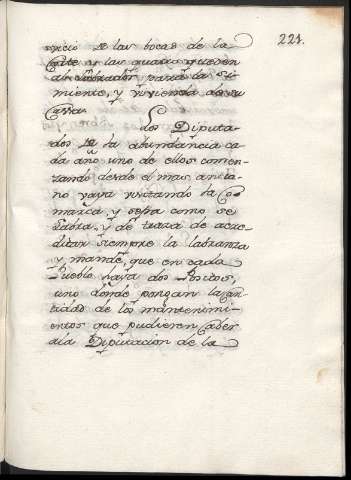 221.
vicio de las bocas de la
Corte y las quatro queden
al Labrador para la si-
miente, y vivienda de su
Cassa.
Los Diputa-
dos de la abundancia ca-
da año uno de ellos comen-
zando desde el mas ancia-
no vaya visitando la Co-
marca y sepa como se
Labra, y de traza de acre-
ditar siempre la labranza
y mande, que en cada
Pueblo haya dos Positos,
uno donde pongan la can-
tidad de los mantenimi-
entos que pudieren caber
Diputacion de la